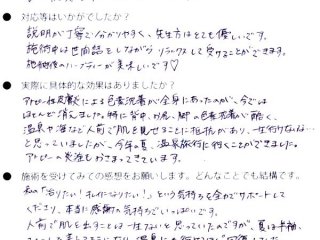 ● 対応等はいかがでしたか？
説明が丁寧で分かりやすく、先生方はとても優しいです。
施術中は世間話をしながらリラックスして受けることができます。
施術後のハーブティーが美味しいです♡
● 実際に具体的な効果はありましたか？
アトピー性皮膚炎による色素沈着が全身にあったのが、今では
ほとんど消えました。特に背中、お尻、脚の色素沈着が酷く、
温泉や海など人前で肌を見せることに抵抗があり、一生行けない…
と思っていましたが、今年の夏、温泉旅行に行くことができました。
アトピーの炎症もおさまってきています。
● 施術を受けてみての感想をお願いします。どんなことでも結構です。
私の「治りたい！キレイになりたい！」という気持ちを全力でサポートして
くださり、本当に感謝の気持ちでいっぱいです。
人前で肌を出すことは一生ないと思っていたのですが、夏は半袖、